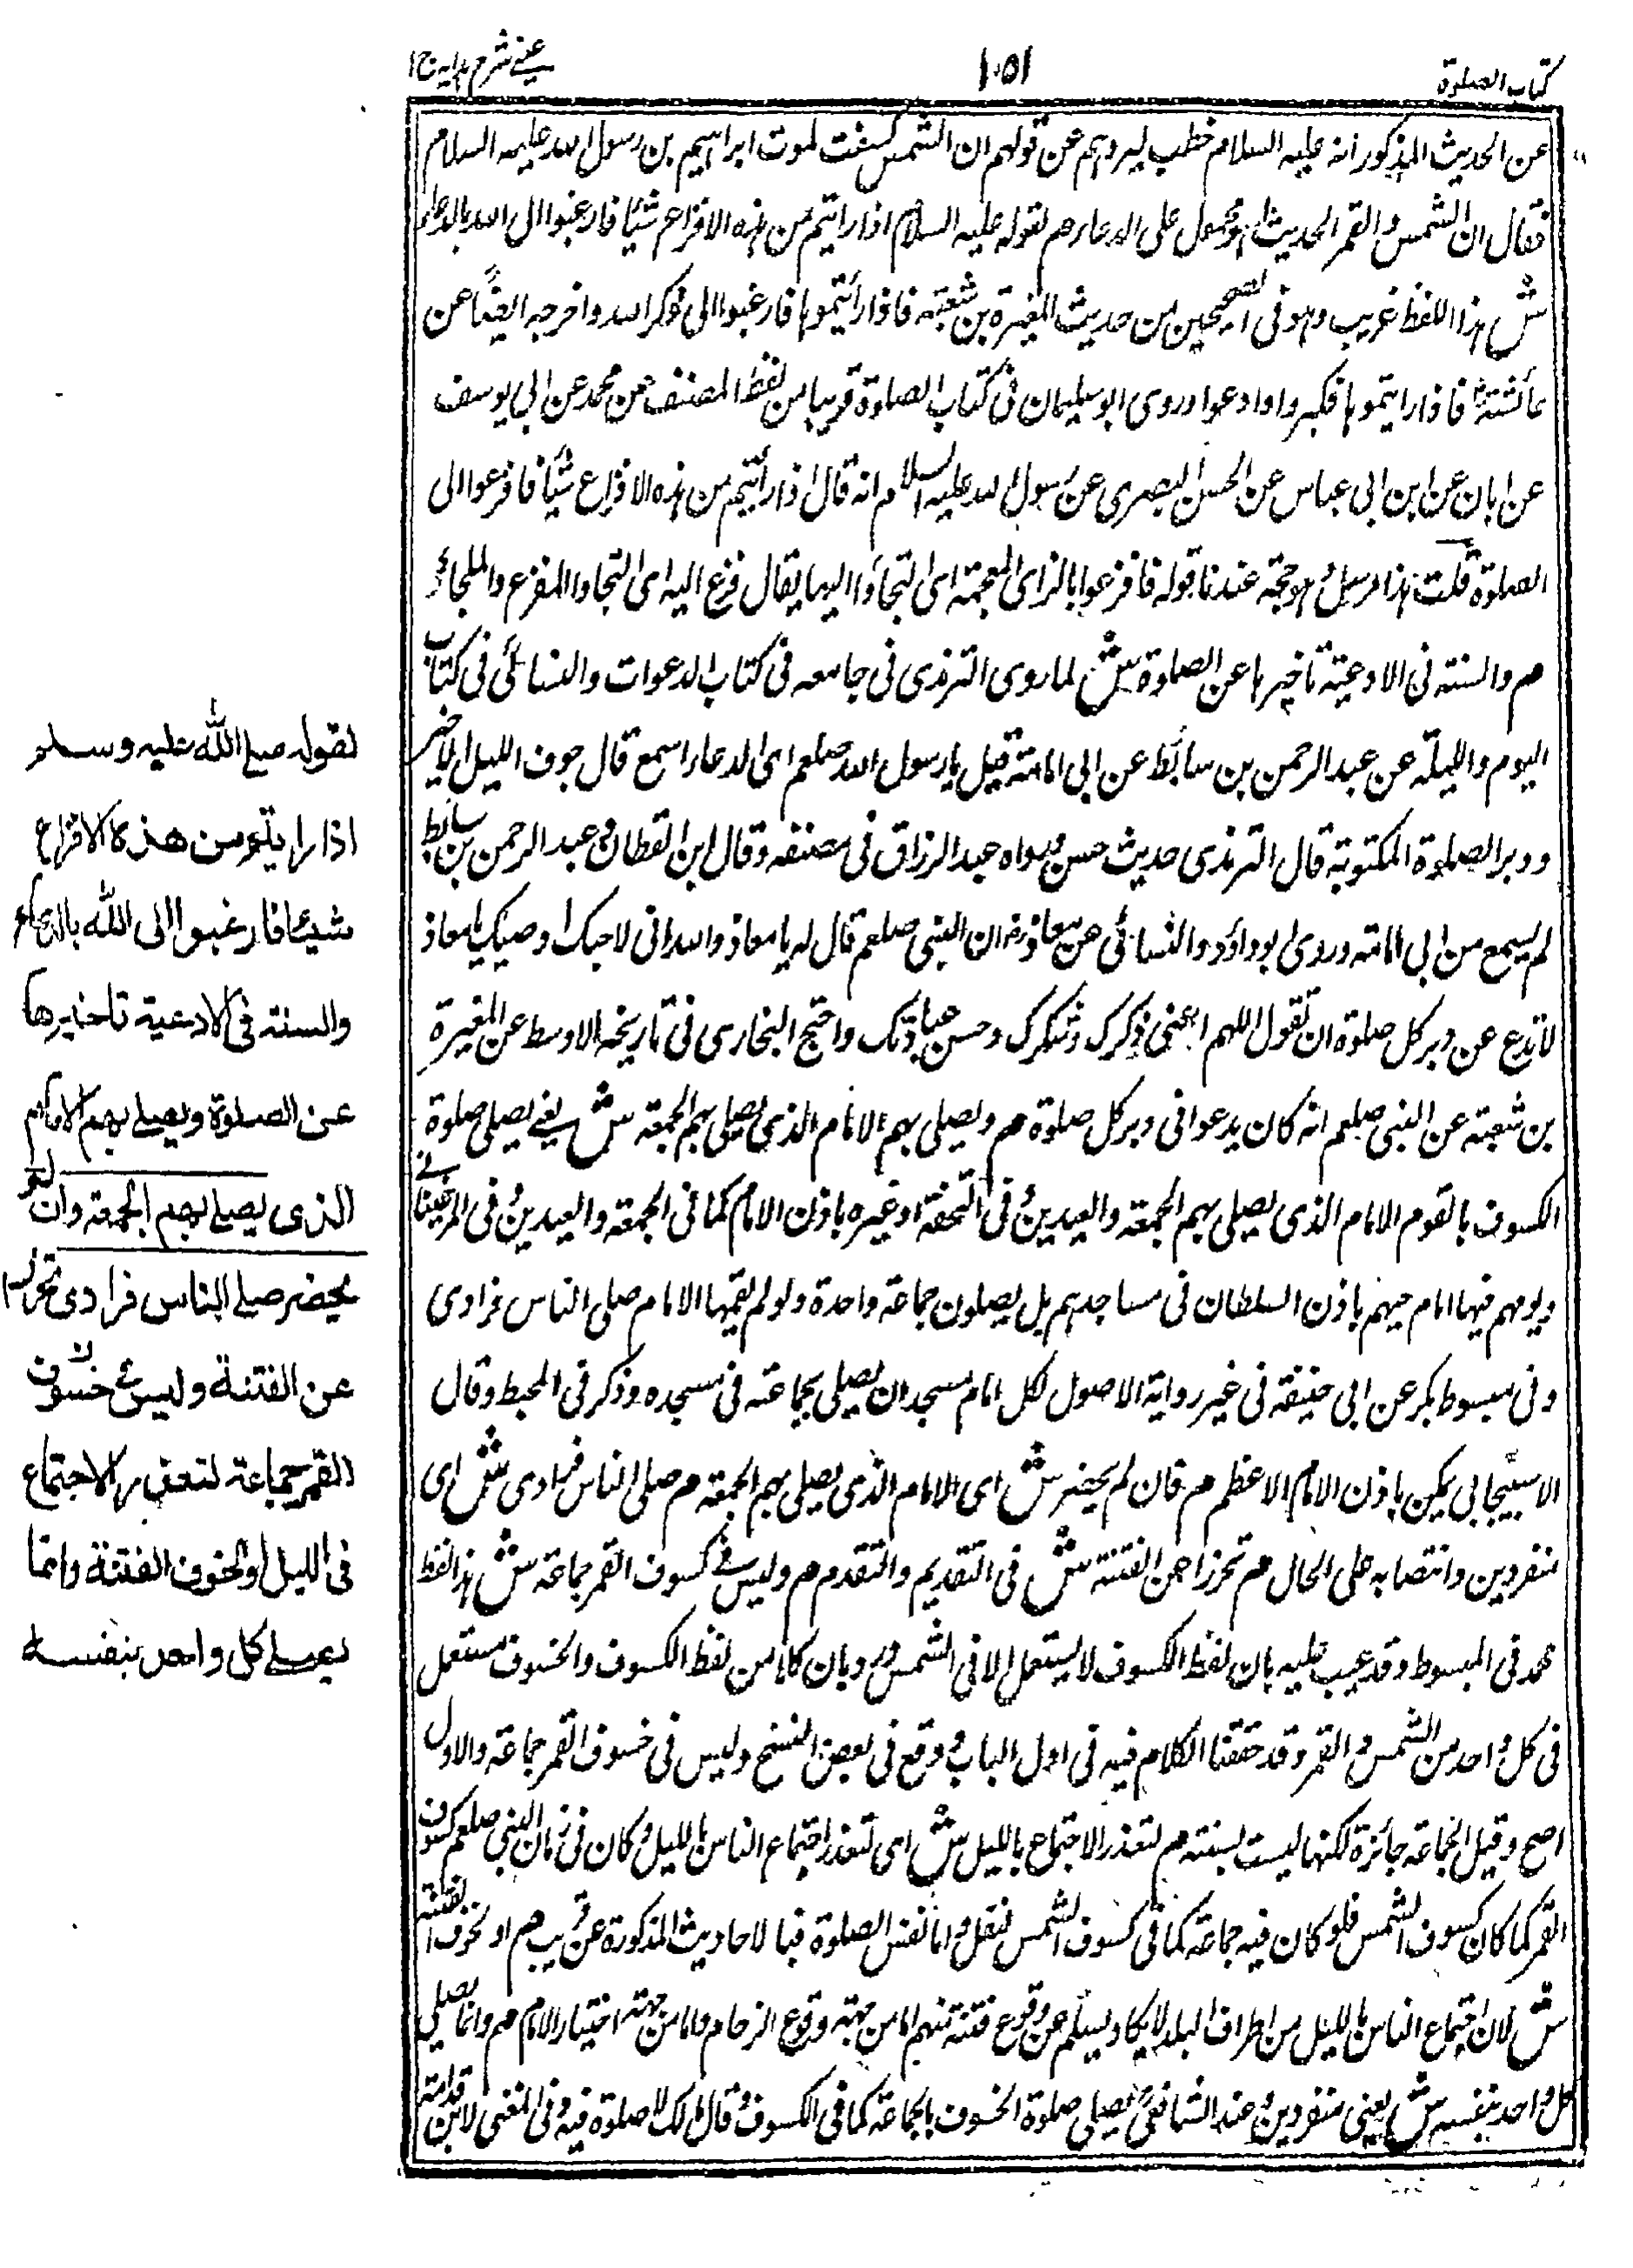 كتاب الصلوة
١٠٥١
عينى شرح هدايه ج ١
عن الحديث المذكور انه عليه السلام خطب ليردهم عن قولهم ان الشمس كسفت لموت ابراهيم بن رسول الله عليه السلام
فقال ان الشمس والقمر الحديث او محمول على الدعاء م لقوله عليه السلام اذا رايتم من هذه الافزاع شيئا فارغبوا الى الله بالدعاء
ش هذا اللفظ غريب وهو فى الصحيحين من حديث المغيرة بن شعبته فاذا رأيتموها فارغبوا الى ذكر الله واخرجه ايضًا عن
عائشة فاذا رايتموها فكبروا وادعوا وروى ابو سليمان فى كتاب الصلوة قريبا من لفظ المصنف عن محمد عن ابى يوسف
عن ابان عن ابن ابى عباس عن الحسن البصرى عن رسول الله عليه السلام انه قال اذا رأيتم من هذه الافزاع شيئا فافزعوا الى
الصلوة قلت هذا مرسل وهو حجة عندنا قوله فافزعوا بالزاى المعجمة اى التجأوا اليها يقال فزع اليه اى التجا والمفزع والملجاء
م والسنة فى الادعية تاخيرها عن الصلوة ش لما روى الترمذى فى جامعه فى كتاب الدعوات والنسائى فى كتاب
اليوم والليلة عن عبد الرحمن بن سابط عن ابى امامة قيل يا رسول الله صلعم اى الدعاء اسمع قال جوف الليل الاخير
ودبر الصلوة المكتوبة قال الترمذى حديث حسن ورواه عبد الرزاق فى مصنفه وقال ابن القطان وعبد الرحمن بن سابط
لم يسمع من ابى امامة وروى ابو داؤد والنسائى عن معاذ رض ان النبى صلعم قال له يا معاذ والله انى لاحبك اوصيك يا معاذ
لا تدع عن دبر كل صلوة ان تقول اللهم اعنى ذكرك وشكرك وحسن عبادتك واحتج البخارى فى تاريخه الاوسط عن المغيرة
بن شعبته عن النبى صلعم انه كان يدعوا فى دبر كل صلوة م ويصلى بهم الامام الذى يصلى بهم الجمعة ش يعنى يصلى صلوة
الكسوف بالقوم الامام الذى يصلى بهم الجمعة والعيدين وفى التحفة او غيره باذن الامام كما فى الجمعة والعيدين وفى المرغينانى
ويومهم فيها امام حيهم باذن السلطان فى مساجدهم بل يصلون جماعة واحدة ولو لم يقمها الامام صلى الناس فرادى
وفى مبسوط بكر عن ابى حنيفة فى غير رواية الاصول لكل امام مسجد ان يصلى بجماعة فى مسجده وذكر فى المحيط وقال
الاسبيجابى يمكن باذن الامام الاعظم م فان لم يحضر ش اى الامام الذى يصلى بهم الجمعة م صلى الناس فرادى ش اى
منفردين وانتصابه على الحال م تحرزا عن الفتنة ش فى التقديم والتقدم م وليس فى كسوف القمر جماعة ش هذا لفظ
محمد فى المبسوط وقد عيب عليه بان لفظ الكسوف لا يستعمل الا فى الشمس ورد بان كلا من لفظ الكسوف والخسوف مستعمل
فى كل واحد من الشمس والقمر وقد حققنا الكلام فيه فى اول الباب ووقع فى بعض النسخ وليس فى خسوف القمر جماعة والاول
اصح وقيل الجماعة جائزة لكنها ليست بسنة م لتعذر الاجتماع بالليل ش اى لتعذر اجتماع الناس بالليل وكان فى زمان النبى صلعم كسوف
القمر كما كان كسوف الشمس فلو كان فيه جماعة كما فى كسوف الشمس لنقل واما نفس الصلوة فبالاحاديث المذكورة عن قريب م او لخوف الفتنة
ش لان اجتماع الناس بالليل من اطراف البلد لا يكاد يسلم عن وقوع فتنة منهم اما من جهة وقوع الزحام واما من جهة اختيار الامام م وانما يصلى
كل واحد بنفسه ش يعنى منفردين وعند الشافعى يصلى صلوة الخسوف بالجماعة كما فى الكسوف وقال مالك لا صلوة فيه وفى المغنى لابن قدامة
لقوله صلى الله عليه وسلم
اذا رايتم من هذه الافزاع
شيئا فارغبوا الى الله بالدعاء
والسنة فى الادعية تاخيرها
عن الصلوة ويصلى بهم الامام
الذى يصلى بهم الجمعة وان لم
يحضر صلى الناس فرادى تحرزا
عن الفتنة وليس فى خسوف
القمر جماعة لتعذر الاجتماع
فى الليل او لخوف الفتنة وانما
يصلى كل واحد بنفسه